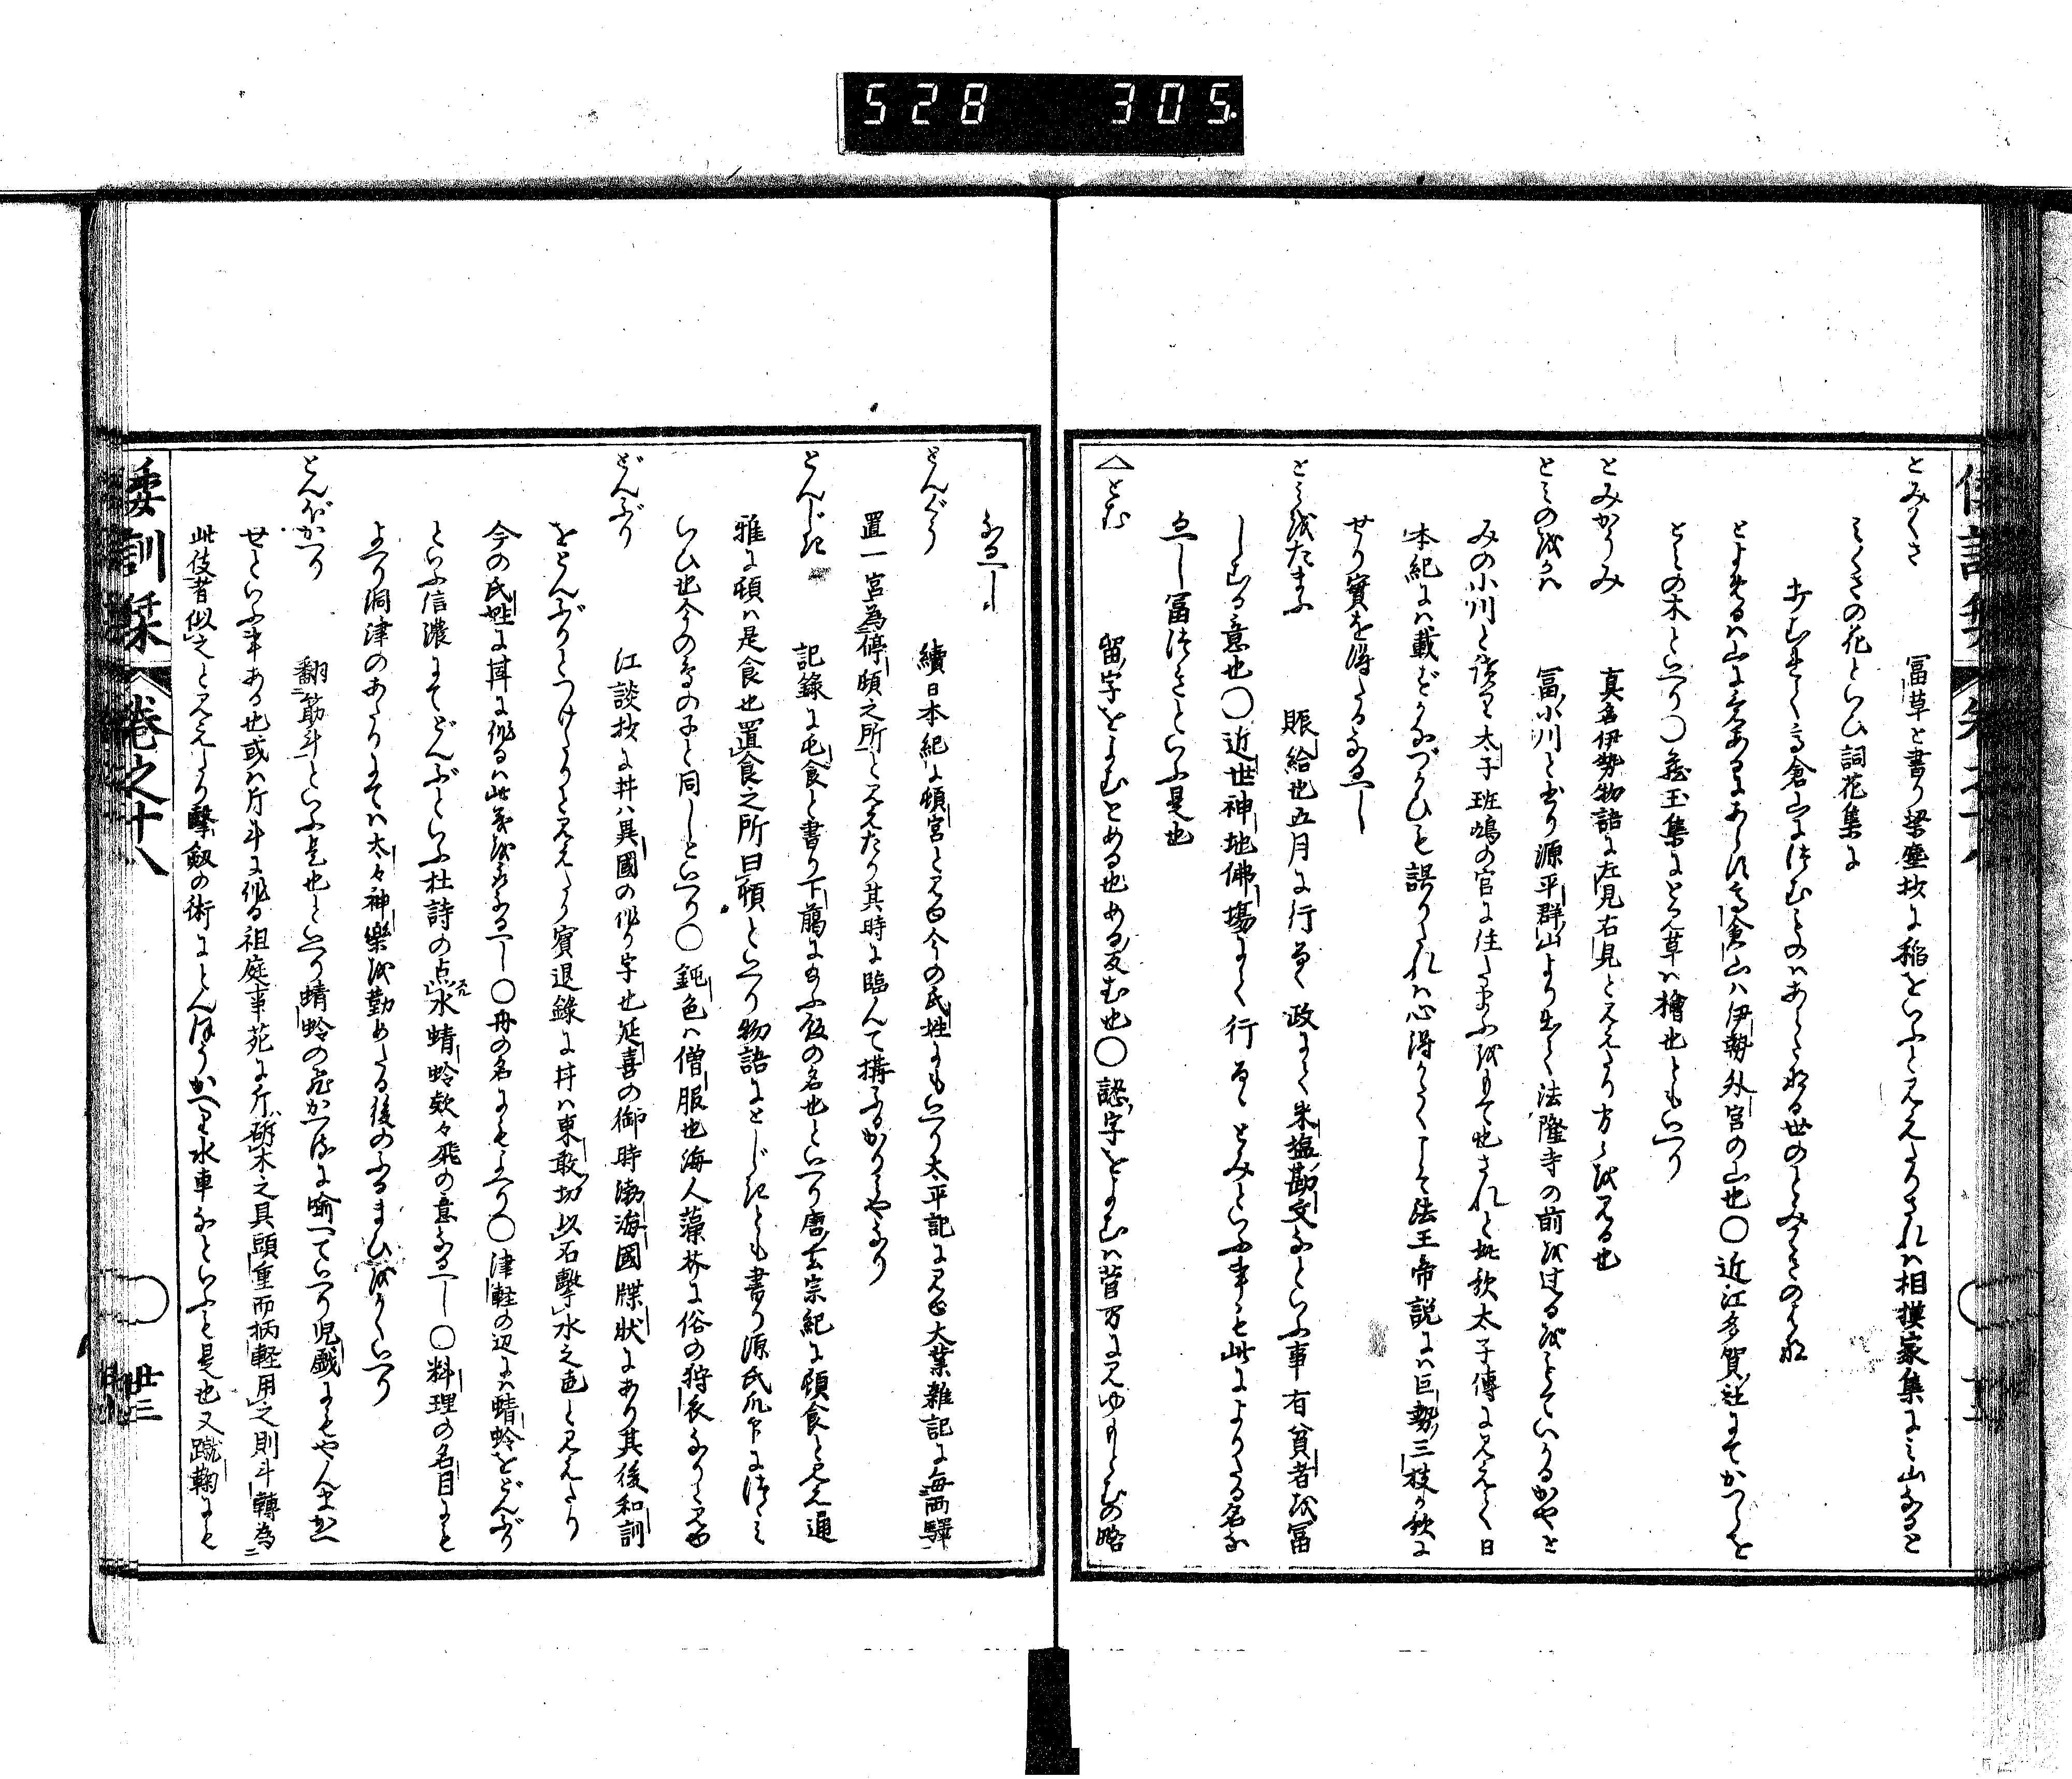 528 305
とみくさ 冨草と書り梁塵抄に稲をいふと見えたりされハ相撲家集にミ山なると
ミくさの花といひ詞花集に
うちむれて高倉山につむものハあらたなき世のとみくさの花
とよめるハ山に名あるにあらた高倉山ハ伊勢外宮の山也〇近江多賀社にてかつらを
とミの木といへり〇蔵玉集にとミ草ハ檜也ともいへり
とみかうみ 真名伊勢物語に左見右見とみえたり方々を見る也
とミの小川 冨小川と書り源平群山より出て法隆寺の前を過るをミていかるかやと
みの小川と讀り太子班鳩の宮に住たまふをもて也されと此歌太子傳に見えて日
本紀にハ載ずかなづかひも誤りたれハ心得かたくして法王帝説にハ巨勢三枝か歌に
せり實を得たるなるへし
とミをたまふ 賑給也五月に行るゝ政にて米塩勘文なといふ事有貧者を冨
しむる意也〇近世神地佛場にて行るゝとみといふ事も此によりたる名な
るへし冨つきといふ是也
△とむ 留字をよむとめる也める反む也〇認字をよむハ菅万に見ゆもとむの略
なるへし
とんぐう 續日本紀に頓宮と見ゆ今の氏姓にもいへり太平記に見ゆ大業雜記に毎両驛
置一宮為停頓之所と見えたり其時に臨んて搆ふるかりミやなり
とんじき 記錄に屯食と書り下﨟に給ふ飯の名也といへり唐玄宗紀に頓食と見え通
雅に頓ハ是食也置食之所曰頓といへり物語にとじきとも書り源氏爪印につゝミ
いひ也今の鳥の子と同しといへり〇鈍色ハ僧服也海人藻芥に俗の狩衣なりと見ゆ
どんぶり 江談抄に丼ハ異國の作り字也延喜の御時渤海國牒状にあり其後和訓
をとんぶりとつけたりと見えたり賓退錄に丼ハ東敢切以石擊水之聲と見えたり
今の氏姓に丼に作るハ此義を取なるへし〇舟の名にもよへり〇津軽の辺にハ蜻蛉をどんぶり
といふ信濃にてどんぶといふ杜詩の点水蜻蛉欵々飛の意なるへし〇料理の名目にも
よへり洞津のあたりにてハ太々神樂を勤めたる後のふるまひをかくいへり
とんぼかへり 翻筋斗といふ是也といへり蜻蛉の飛かへるに喩へていへり児戲にもやんまかへ
せといふ事ある也或ハ斤斗に作る祖庭事苑に斤斫木之具頭重而柄軽用之則斗轉為
此伎者似之と見えたり擊劔の術にとんぼうかへり水車なといふも是也又蹴鞠にも
倭訓栞 巻之十八 〇 廿三